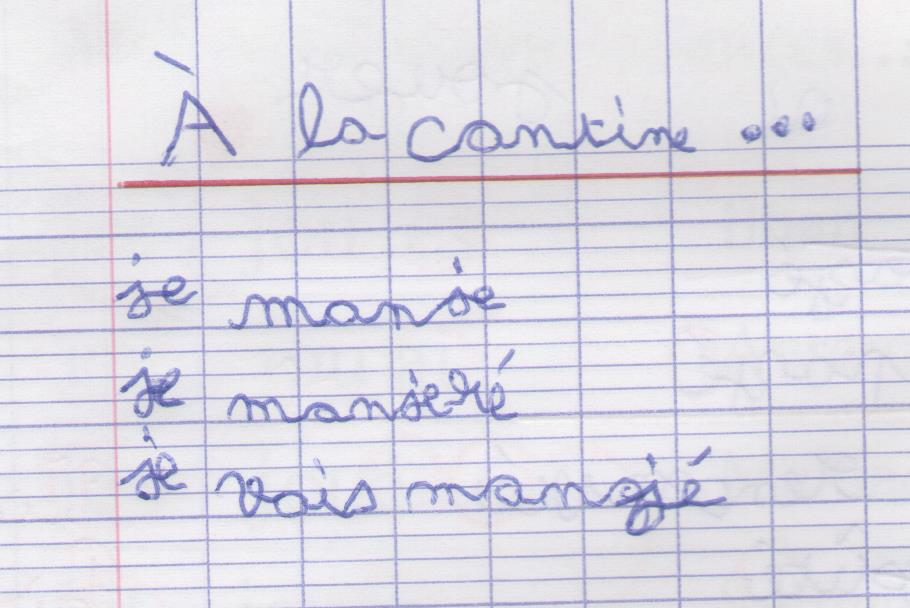 À la cantine ...
je manje
je manjeré
je vais mangé